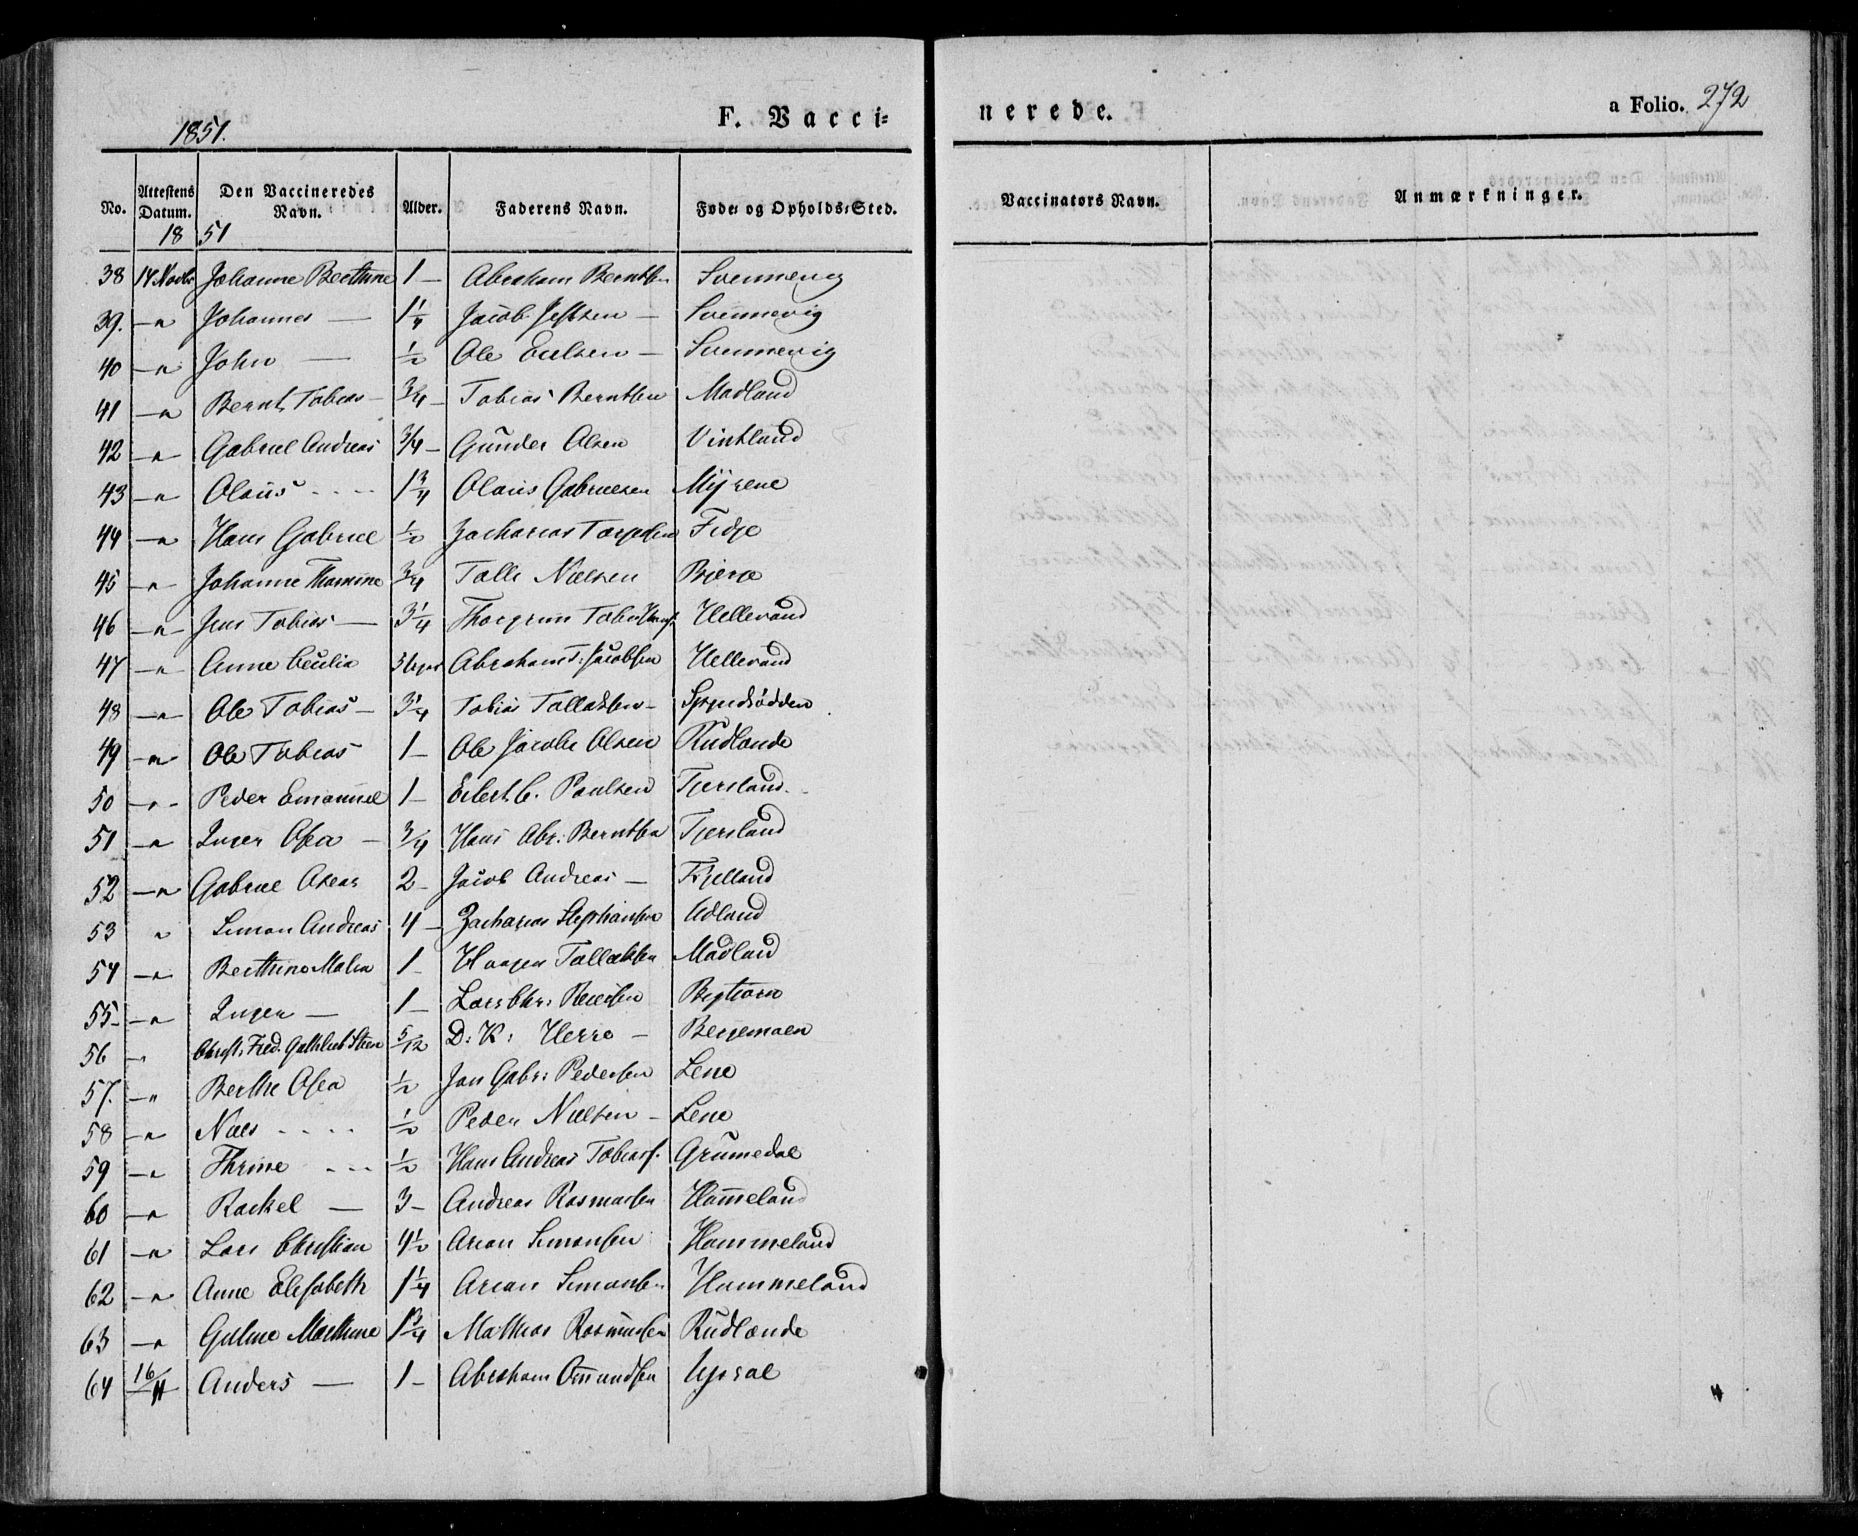 1851.
F. Vacci=
nerede.
a Folio. 272
No.
Attestens Datum.
Den Vaccineredes Navn.
Alder.
Faderens Navn.
Føde- og Opholds-Sted.
Vaccinators Navn.
Anmærkninger.
18 51
38 14 Novbr Johanne Berthine 1 — Abraham Berntsen Svennevig
39. —" Johannes — 1 1/4 Jacob — Svennevig
40 —" John — 1/2 Ole — Svennevig
41 —" Bernt Tobias — 3/4 — Tobias Berntsen Madland
42 —" Gabriel Andreas 3/4 — Gunder Olsen Vintland
43 —" Olaus - - - - 1 3/4 Olaus Gabrielsen Myrene
44 —" Hans Gabriel 1/2 Zacharias Fidje
45 —" Johanne Thomine 3/4 Talle Nielsen Bjerge
46 —" Jens Tobias — 3 1/4 Hellevand
47 —" Anne Cecilia Abraham T: Jacobsen Hellevand
48 —" Ole Tobias — Tobias Tallaksen —
49 —" Ole Tobias 1 — Ole Jacob Olsen Rudlande
50 —" Peder Emanuel 1 — Eilert C. Paulsen Tjersland
51 —" Inger Osea — 3/4 Hans Abr: Berntsen Tjersland
52 —" Gabriel Oseas 2 — Jacob Andreas —
53 " Simon Andreas 4 — Zacharias Stephansen Udland
54 —" Berthine Malea 1 — Haagen Tallaksen Madland
55 — —" Inger — 1 — Lars Chr: Reiersen
56 —" Christ: Fred. Gothlieb Steen 5/12 D: K: Herre — Bergemoen
57. —" Berthe Osea 1/2 Jan Gabr: Pedersen Lene
58 —" Niels - - - - 1/2 Peder Nielsen — Lene
59 —" Thrine - - - 1/2 Hans Andreas Tobiass. Grummedal
60 —" Rachel — 3 — Andreas Rasmussen Hom̄eland
61 —" Lars Christian 4 1/2 Arian Simonsen Hommeland
62 —" Anne Elisabeth 1 1/4 Arian Simonsen Hommeland
63 —" Guline Marthine 1 3/4 Mathias Rasmussen Rudlænde
64 16/11 Anders — 1 — Abraham Om̄undsen